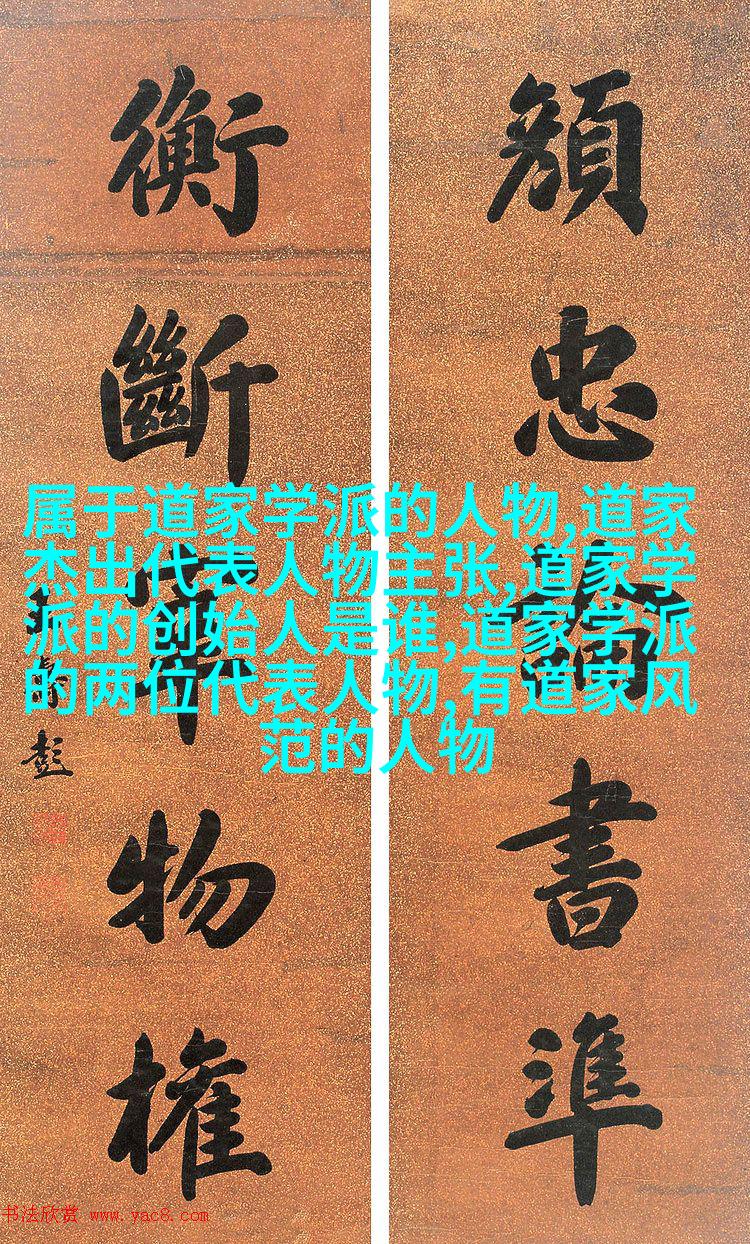 忠書準
衡斷物權
彭
属于道家学派的人物,道家
杰出代表人物主张,道家学
派的创始人是谁,道家学派
的两位代表人物,有道家风
范的人物
书法欣赏 www.yac8.com